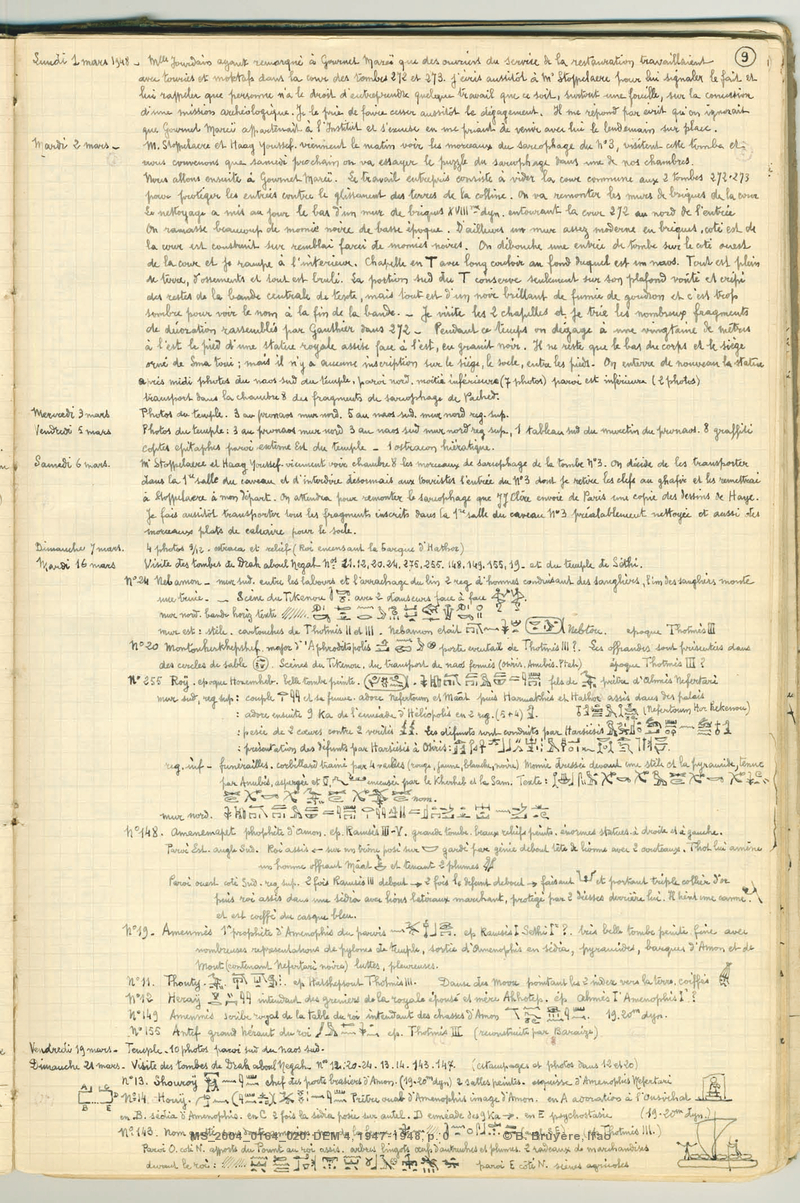 9
Lundi 1 mars 1948 - Mlle Jourdain ayant remarqué à Gournet Mareï que des ouvriers du service de la restauration travaillaient
avec touriès et moktafs dans la cour des tombes 272 et 273. J'écris aussitôt à Mr Stoppelaere pour lui signaler le fait et
lui rappeler que personne n'a le droit d'entreprendre quelque travail que ce soit, surtout une fouille, sur la concession
d'une mission archéologique. Je le prie de faire cesser aussitôt le dégagement. Il me répond par écrit qu'on ignorait
que Gournet Mareïi appartenait à l'Institut et s'excuse en me priant de venir avec lui le lendemain sur place.
Mardi 2 mars - M. Stoppelaere et Haag Youssef viennent le matin voir les morceaux du sarcophage du N°3, visitent cette tombe et
nous convenons que samedi prochain on va essayer le puzzle du sarcophage dans une de nos chambres.
Nous allons ensuite à Gournet Mareï. Le travail entrepris consiste à vider la cour commune aux 2 tombes 272-273
pour protéger les entrées contre le glissement des terres de la colline. On va remonter les murs de briques de la cour
Le nettoyage a mis au jour le bas d'un mur de briques XVIIIme dyn. entourant la cour 272 au nord de l'entrée
On ramasse beaucoup de momie noire de basse époque. D'ailleurs un mur assez moderne en briques, coté est de
la cour est construit sur remblai farci de momies noires. On débouche une entrée de tombe sur le coté ouest
de la cour et je rampe à l'intérieur. Chapelle en T avec long couloir au fond duquel est un naos. Tout est plein
de terre, d'ossements et tout est brulé. La portion sud du T conserve seulement sur son plafond voûté et crépi
des restes de la bande centrale de texte, mais tout est d'un noir brillant de fumée de goudron et c'est trop
sombre pour voir le nom à la fin de la bande. - Je visite les 2 chapelles et je trie les nombreux fragments
de décoration rassemblés par Gauthier dans 272 - Pendant ce temps on dégage à une vingtaine de mètres
à l'est le pied d'une statue royale assise face à l'est, en granit noir. Il ne reste que le bas du corps et le siège
orné de Sma taoui; mais il n'y a aucune inscription sur le siège, le socle, entre les pieds. On enterre de nouveau la statue
après midi photos du naos sud du temple, paroi nord, moitié inférieure (7 photos) paroi est inférieure (2 photos)
transport dans la chambre 8 des fragments de sarcophage de Pached.
Mercredi 3 mars Photos du temple: 3 au pronaos mur nord. 5 au naos sud. mur nord reg. sup.
Vendredi 5 mars Photos du temple: 3 au pronaos mur nord 3 au naos sud mur nord reg sup, 1 tableau sud du muretin du pronaos. 8 graffiti
coptes epitaphes paroi externe Est du temple - 1 ostracon hiératique.
Samedi 6 mars. Mr Stoppelaere et Haag Youssef viennent voir chambre 8 les morceaux de sarcophage de la tombe N°3. On décide de les transporter
dans la 1re salle du caveau et d'interdire désormais aux touristes l'entrée du N°3 dont je retire les clefs au ghafir et les remettrai
à Stoppelaere à mon départ. On attendra pour remonter le sarcophage que JJ Clère envoie de Paris une copie des dessins de Haye.
Je fais aussitôt transporter tous les fragments inscrits dans la 1re salle du caveau N°3 préalablement nettoyée et aussi des
morceaux plats de calcaire pour le socle.
Dimanche 7 mars. 4 photos 9/12 - ostraca et relief (Roi encensant la barque d'Hathor)
Mardi 16 mars Visite des tombes de Drah aboul Negah Nos 21.12.20.24.275.255.148.149.155.19 - et du temple de Séthi.
N°24 Nebamon - mur sud. entre les labours et l'arrachage du lin 2 reg d'hommes conduisant des sangliers, l'un des sangliers monte
une truie. - Scène du Tikenou avec 2 danseurs face à face
mur nord. bande horiz texte
mur est: stèle. cartouches de Thotmès II et III. Nebamon était Nebtou. epoque Thotmès III
N°20 Montouherkhepshef. major d'Aphroditopolis porte éventail de Thotmès III?. Les offrandes sont présentées dans
des cercles de sable. Scènes du Tikenou, du transport de naos fermés (Osiris. Anubis. Ptah) époque Thotmès III?
N°255 Roÿ. epoque Horemheb. belle tombe peinte. fils de prêtre d'Ahmès Nefertari
mur sud, reg sup: couple et sa femme. adore Nefertoum et Maât puis Harmakhis et Hathor assis dans des palais
: adore ensuite 9 Ka de l'ennéade d'Héliopolis en 2 reg. (5+4) (Nefertoum Hor Hekenou)
: pesée de 2 cœurs contre 2 vérités. Les défunts sont conduits par Harsiésis
: présentation des défunts par Harsiésis à Osiris:
reg. inf - funérailles. corbillard trainé par 4 vaches (rouge, jaune, blanche, noire) Momie dressée devant une stèle et la pyramide, tenue
par Anubis, aspergée et encensée par le Kherheb et le Sam. Texte:
nom.
mur nord.
N°148. Amenemapet prophète d'Amon. ep. Ramsès III-V. grande tombe. beaux reliefs peints. énormes statues à droite et à gauche.
Paroi Est. angle Sud. Roi assis sur un trône posé sur gardé par génie debout tête de lionne avec 2 couteaux. Thot lui amène
un homme offrant Maât et tenant 2 plumes
Paroi ouest coté Sud. reg. sup. 2 fois Ramsès III debout 2 fois le défunt debout faisant et portant triple collier d'or
puis roi assis dans une sédia avec lions latéraux marchant, protégé par 2 déesses derrière lui. Il tient une canne
et est coiffé du casque bleu.
N°19 - Amenmès 1er prophète d'Amenophis du parvis. ep Ramsès I Séthi Ier?. très belle tombe peinte fine avec
nombreuses représentations de pylones de temple, sortie d'Amenophis en sédia, pyramides, barques d'Amon et de
Mout (contenant Nefertari noire) luttes, pleureuses.
N°11. Thouty. ep. Hatshepsout Thotmès III. Danse des Moou pointant les 2 index vers la terre, coiffés
N°12 Heraÿ intendant des greniers de la royale épouse et mère Ahhotep. ép. Ahmès I Amenophis Ier?
N°149 Amenmès scribe royal de la table du roi intendant des chasses d'Amon 19.20me dyn.
N°155 Antef grand héraut du roi ep. Thotmès III (reconstruite par Baraize)
Vendredi 19 mars - Temple - 10 photos paroi sud du naos sud.
Dimanche 21 mars - Visite des tombes de Drah aboul Negah Nos 12.20.24.13.14.143.147. (estampages et photos dans 12 et 20)
N°13. Shouroÿ chef des porte brasiers d'Amon. (19-20me dyn) 2 salles peintes. esquisse d'Amenophis Nefertari
N°14. Houy. Prêtre ouab d'Amenophis image d'Amon. en A adoration à l'Ousirhat
en B. sédia d'Amenophis. en C 2 fois la sédia posée sur autel. D ennéade des 9 Ka. en E psychostasie (19-20me Dyn.)
N°143. Nom Thotmès III.)
MS_2004_0164_020: DEM 4, 1947-1948, p. 0 © B. Bruyère, Ifao
Paroi O. coté N. apports du Pount au roi assis. arbres lingots œufs d'autruches et plumes. 2 radeaux de marchandises
devant le roi: paroi E côté N. scènes agricoles